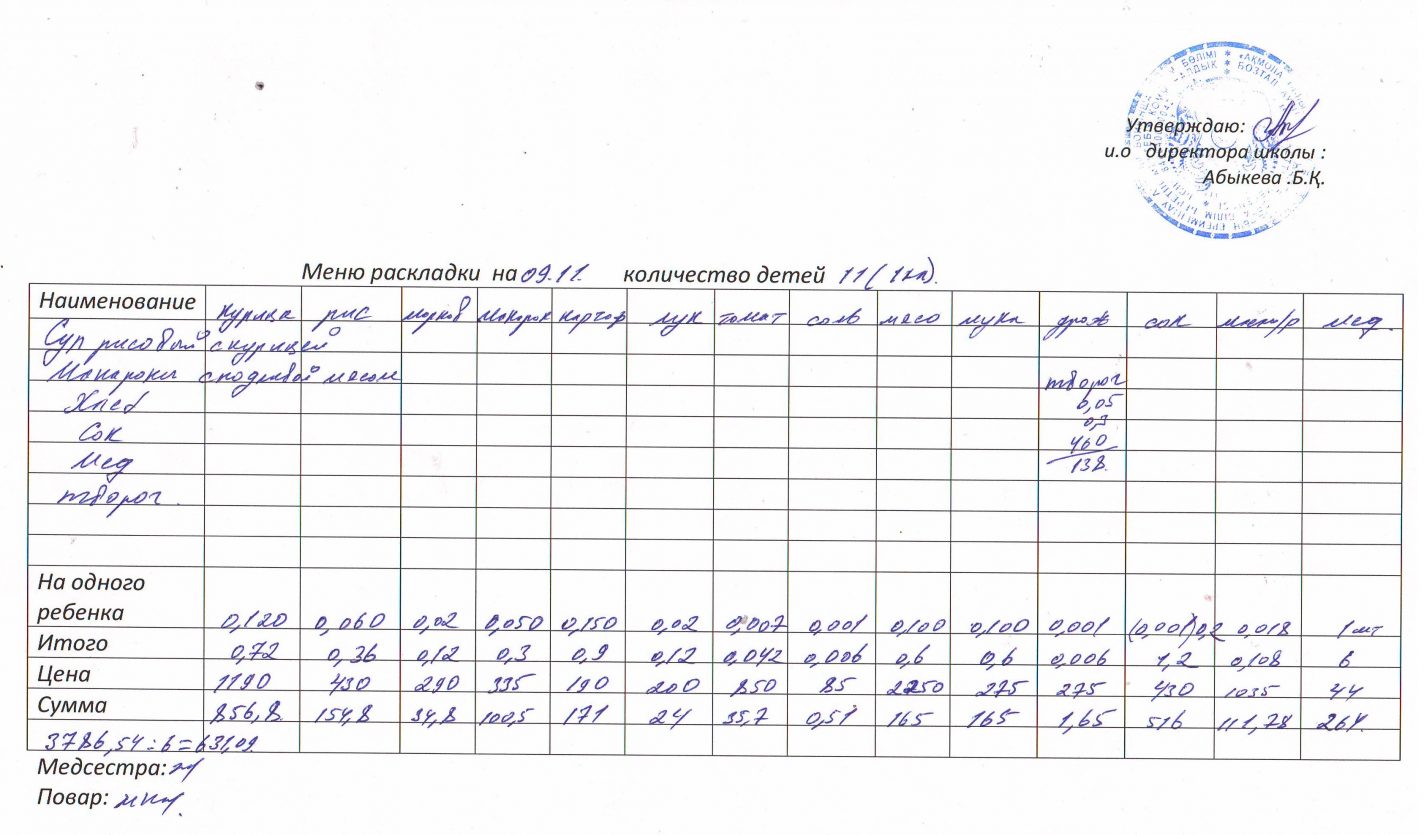 Утверждаю:
и.о директора школы :
Абыкева .Б.Қ.
Меню раскладки на 09.11. количество детей 11 ( 1 кл).
Наименование курица рис морков макарон картоф лук томат соль мясо мука дрож сок мал/р мед.
Суп рисовый с курицей
Макароны с подливой мясом творог
Хлеб 0,05
Сок 0,3
460
Мед 138.
творог .
На одного
ребенка 0,120 0,060 0,02 0,050 0,150 0,02 0,007 0,001 0,100 0,100 0,001 (0,001)0,2 0,018 1 шт
Итого 0,72 0,36 0,12 0,3 0,9 0,12 0,042 0,006 0,6 0,6 0,006 1,2 0,108 6
Цена 1190 430 290 335 190 200 850 85 2250 275 275 430 1035 44
Сумма 856,8 154,8 34,8 100,5 171 24 35,7 0,51 165 165 1,65 516 111,78 264.
3786,54 ÷ 6 = 631,09
Медсестра:
Повар: